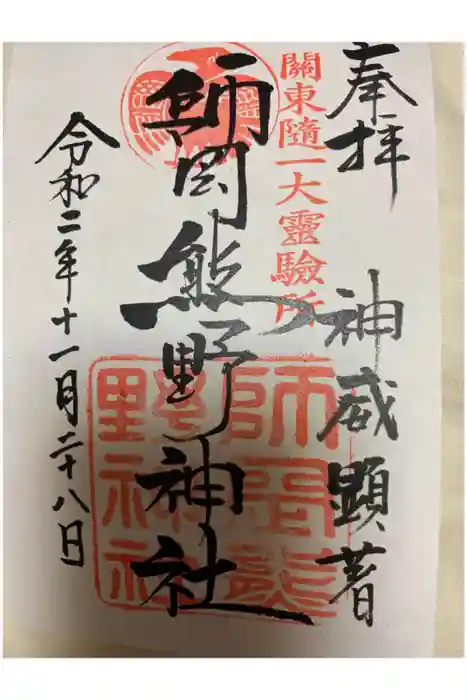 奉拝
神威顕著
關東隨一大靈驗所
師岡熊野神社
令和二年十一月二十八日
師岡熊
野神社